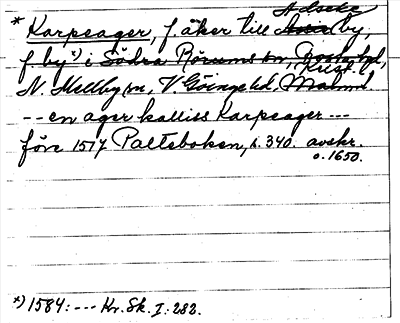 Adseke
* Karpeager, f. åker till Asia by,
f. by *) i Södra Rörums sn, Frosta hd,
Krist. l.
N. Mellby sn, V. Göinge hd, Malm. l
-- en ager kalliss Karpeager ---
före 1517 Paltsboken, s. 340. avskr.
o. 1650.
*) 1584: --- Kr. Sk. I: 282.